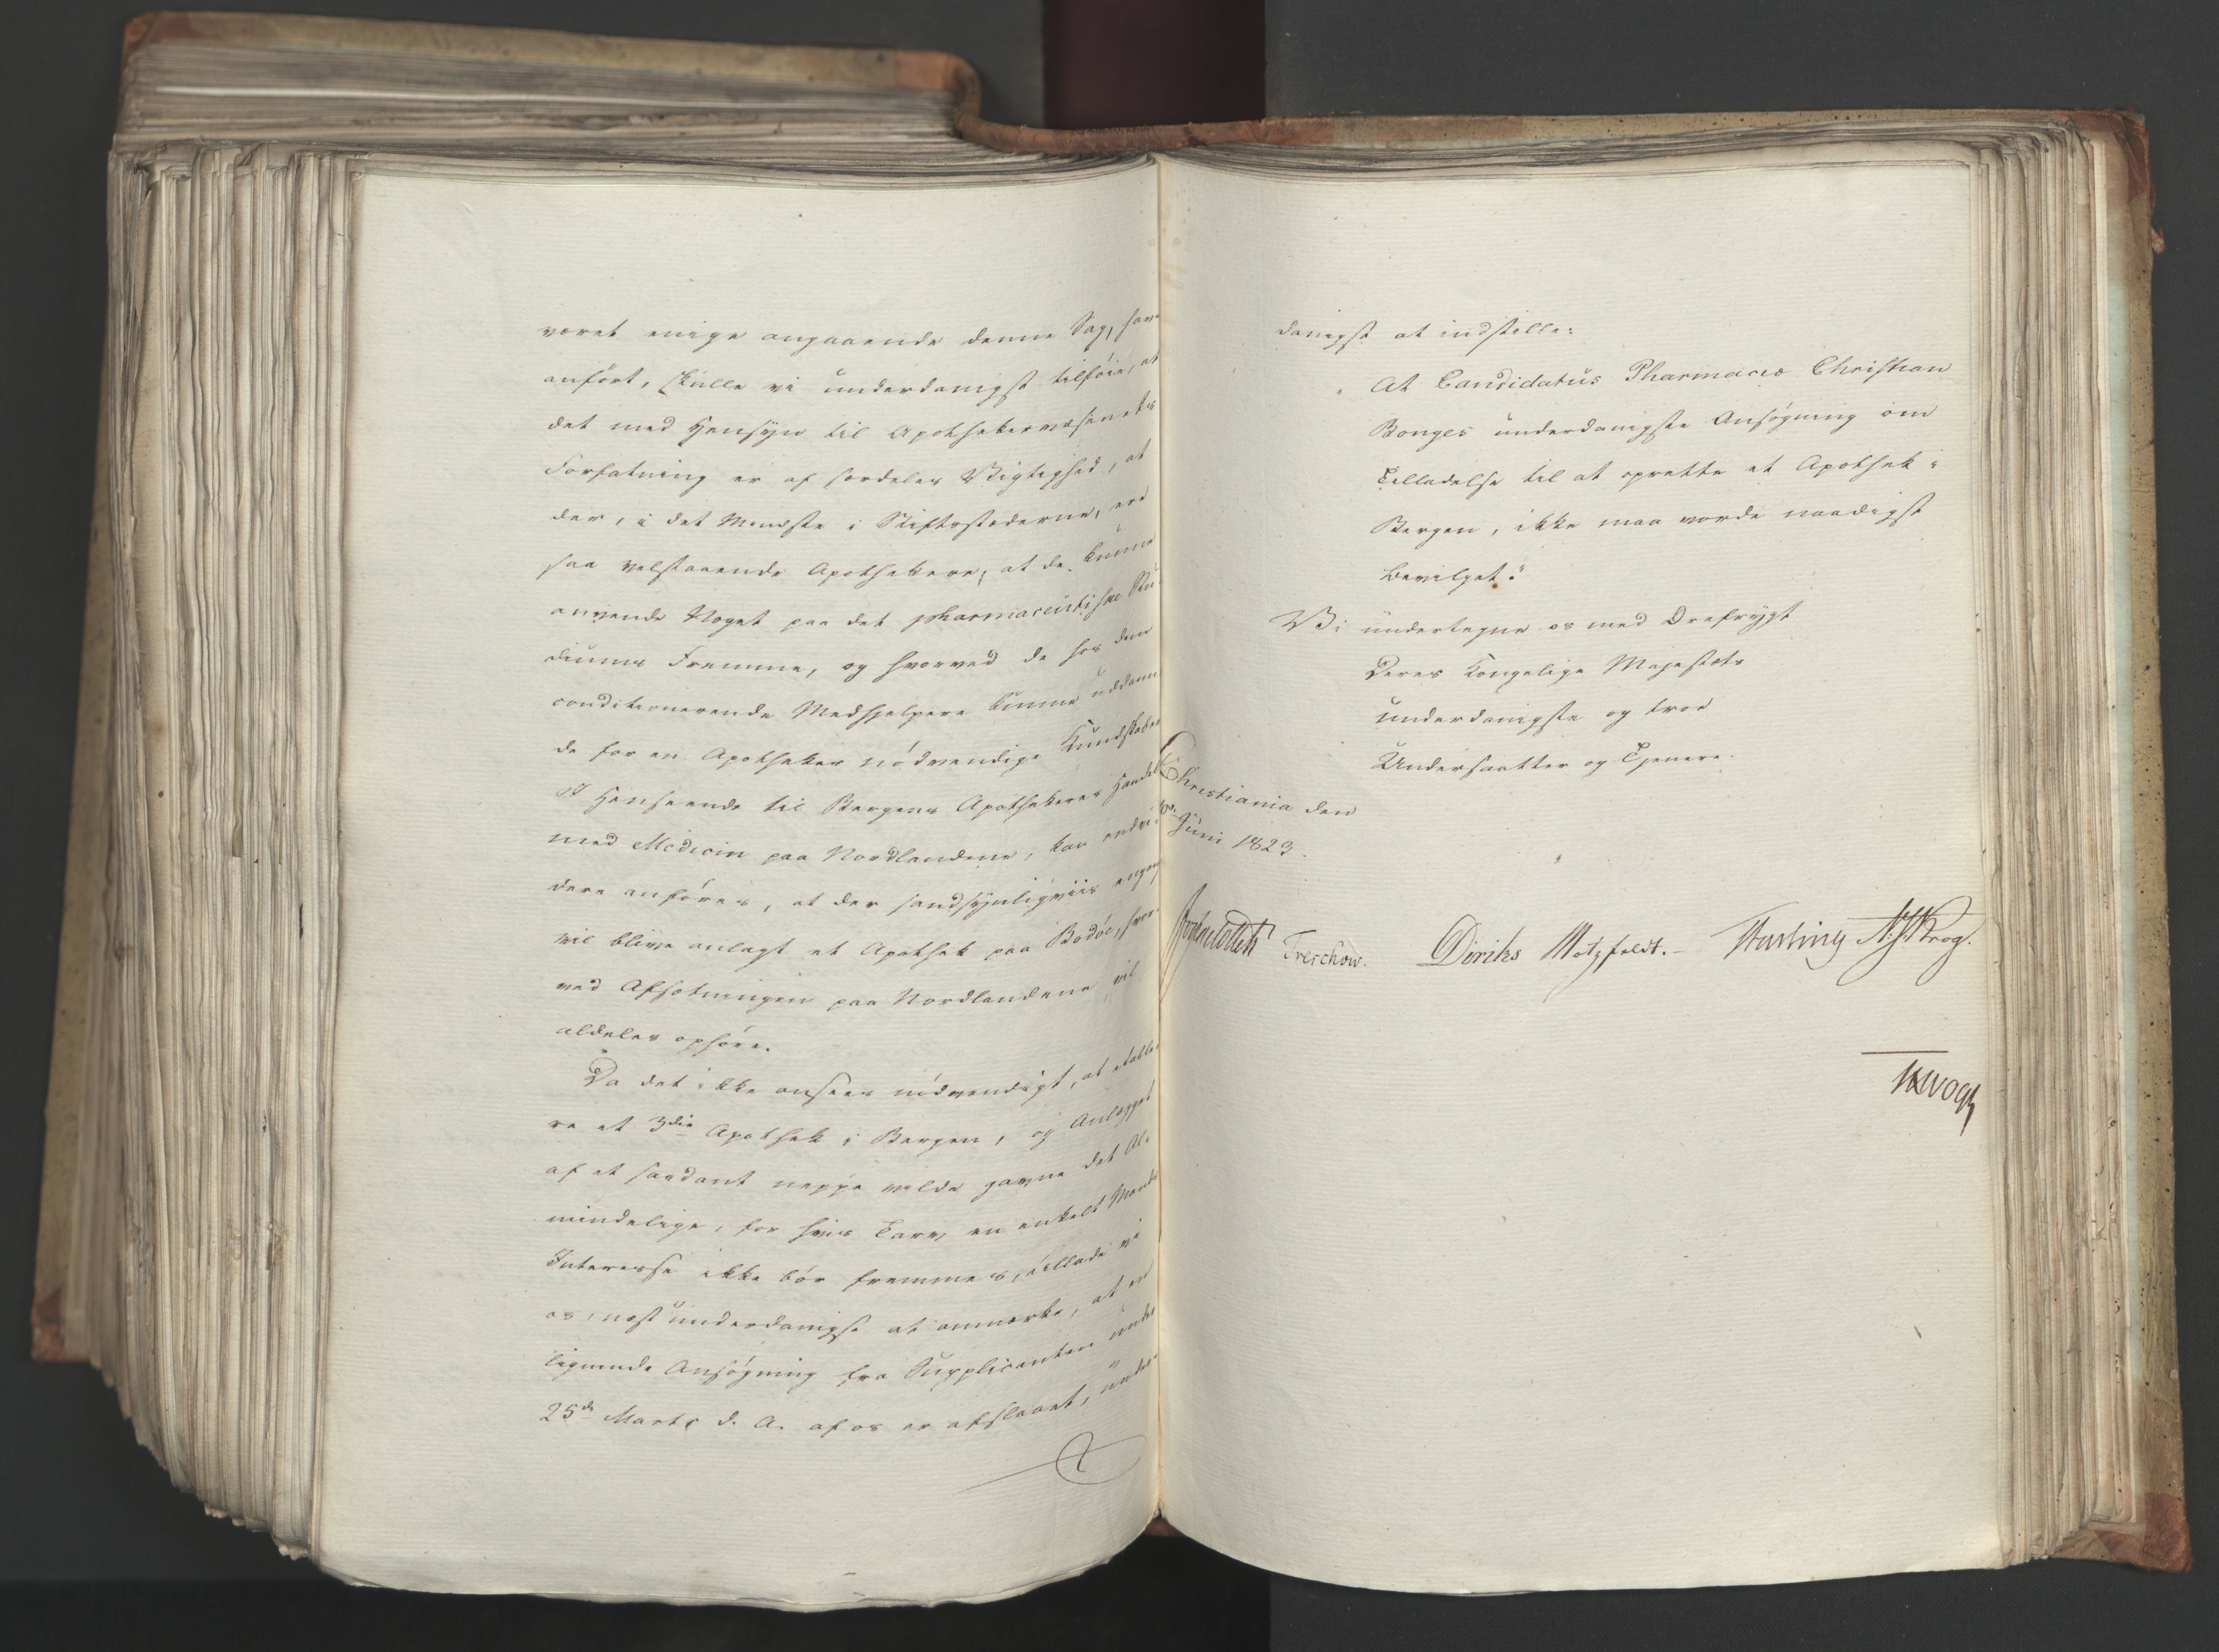 været enige angaaende denne Sag, have
anført, skulle vi underdanigst tilføie, at
det med Hensyn til Apothekervæsenets
Forfatning er af særdeles Vigtighed, at
der, i det Mindste i Stiftsstæderne, ere
saa velstaaende Apothekere, at de kunne
anvende Noget paa det pharmaceutiske Stu
diums Fremme, og hvorved de hos dem
conditionerende Medhjelpere kunne uddanne
de for en Apotheker nødvendige Kundskaber
I Henseende til Bergens Apothekeres Handel
med Medicin paa Nordlandene, kan endvi
dere anføres, at der sandsynligviis engang
vil blive anlagt et Apothek paa Bodøe, hvor
ved Afsætningen paa Nordlandene vil
aldeles ophøre.
Da det ikke ansees nødvendigt, at etable
re et 3die Apothek i Bergen, og Anlægget
af et saadant neppe vilde gavne det Al-
mindelige, for hvis Tarv en enkelt Mands
Interesse ikke bør fremmes, tillade vi
os, næst underdanigst at anmærke, at en
lignende Ansøgning fra Supplicanten under
25de Marts d. A. af os er afslaaet, under-
danigst at indstille:
"At Candidatus Pharmaciæ Christian
Bonges underdanigste Ansøgning om
Tilladelse til at oprette et Apothek i
Bergen, ikke maa vorde naadigst
bevilget."
Vi undertegne os med Ærefrygt
Deres Kongelige Majestæts
underdanigste og troe
Undersaatter og Tjenere.
Christiania den
Juni 1823.
Treschow. Diriks Motzfeldt. Krog.
Vogt